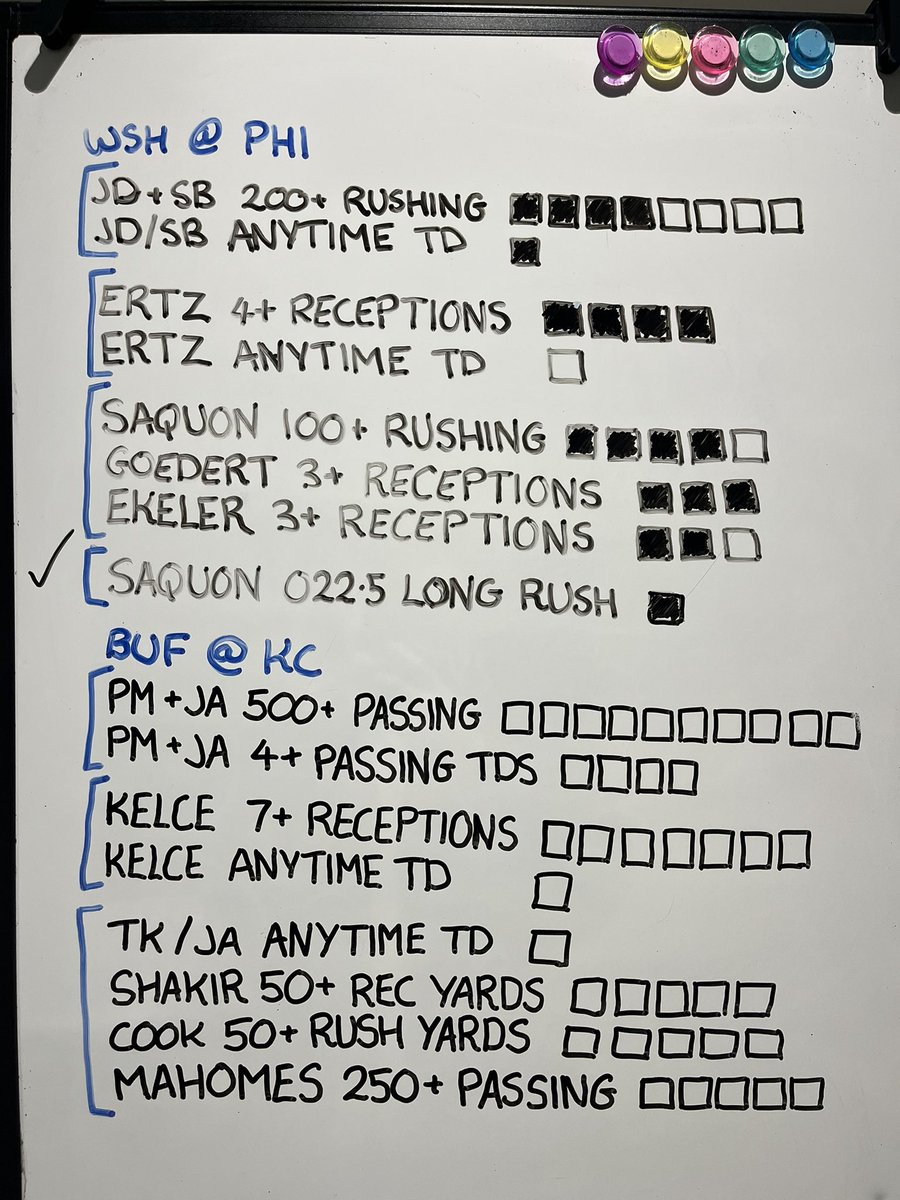 WSH @ PHI
JD+SB 200+ RUSHING
JD/SB ANYTIME TD
ERTZ 4+ RECEPTIONS
ERTZ ANYTIME TD
SAQUON 100+ RUSHING
GOEDERT 3+ RECEPTIONS
EKELER 3+ RECEPTIONS
SAQUON O22.5 LONG RUSH
BUF @ KC
PM+JA 500+ PASSING
PM+JA 4+ PASSING TDS
KELCE 7+ RECEPTIONS
KELCE ANYTIME TD
TK/JA ANYTIME TD
SHAKIR 50+ REC YARDS
COOK 50+ RUSH YARDS
MAHOMES 250+ PASSING